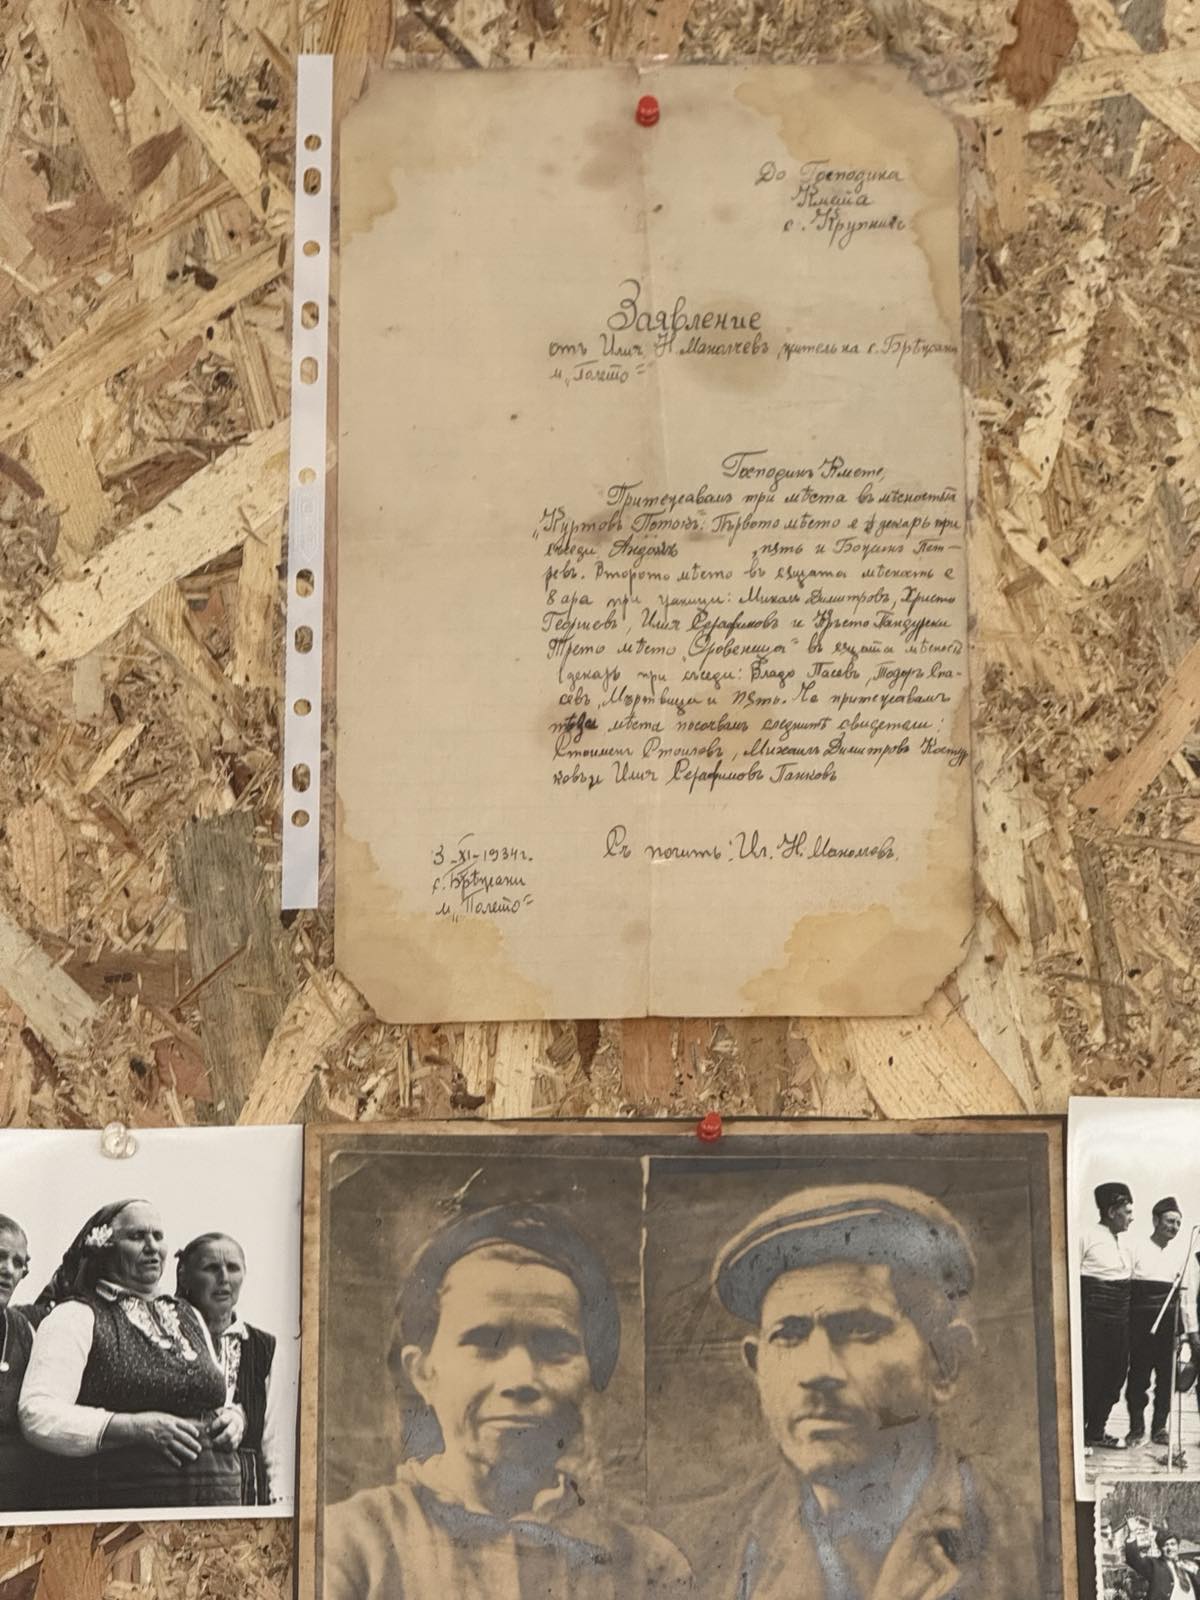 До Господина
Кмета
с. Крупникъ
Заявление
отъ Илия Н. Маноловъ, жителъ на с. Брѣжани
м. „Полето“
Господинъ Кмете,
Притежавамъ три мѣста въ мѣсностьта
„Куртовъ Потокъ“. Първото мѣсто е декаръ при
съседи: пѫть и Божинъ Пет-
ровъ. Второто мѣсто въ сѫщата мѣсность е
8 ара при граници: Михаилъ Димитровъ, Христо
Георгиевъ, Илия Серафимовъ и Кръсто Пандурски
Трето мѣсто въ сѫщата мѣсность
1 декаръ при съседи: Владо Пасевъ, Тодоръ Спа-
совъ, Мъртвица и Пѫть. Че притежавамъ
тѣзи мѣста посочвамъ следнитѣ свидетели:
Стоименъ Стоиловъ, Михаилъ Димитровъ Косту
ковъ и Илия Серафимовъ Панковъ
3-XI-1934 г.
с. Брѣжани
м. „Полето“
Съ почить: Ил. Н. Маноловъ.